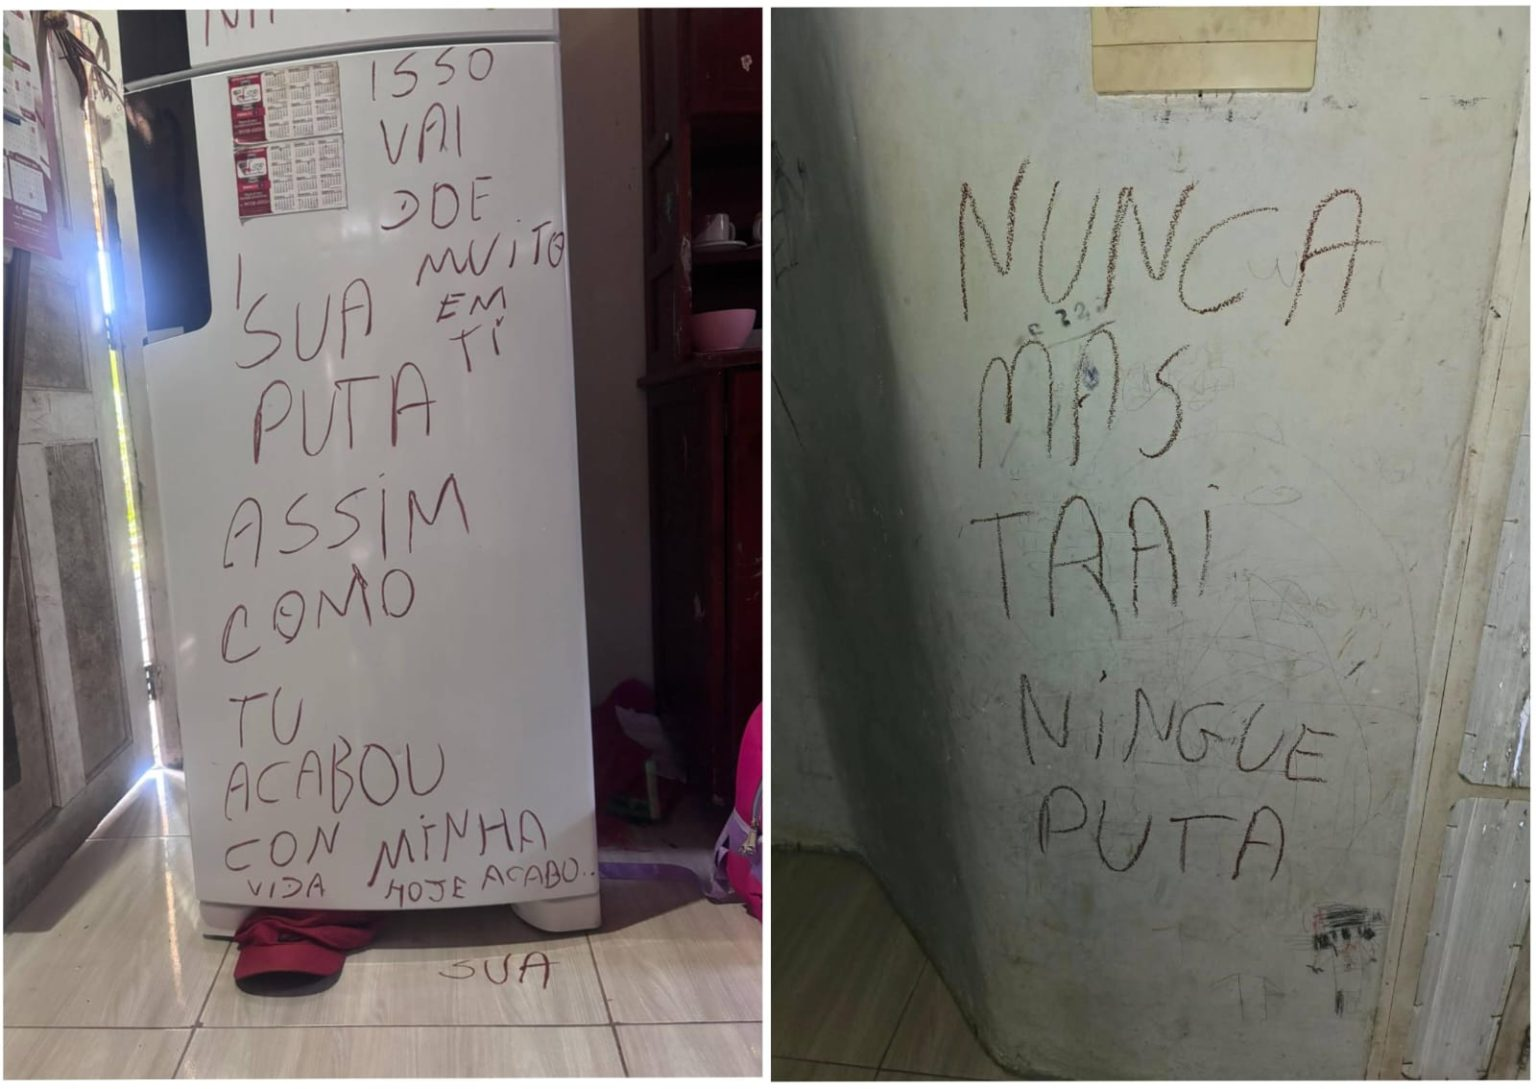 ISSO
VAI
DOE
MUITO
EM
TI
SUA
PUTA
ASSIM
COMO
TU
ACABOU
CON MINHA
VIDA HOJE ACABO..
SUA
NUNCA
MAS
TRAI
NINGUE
PUTA